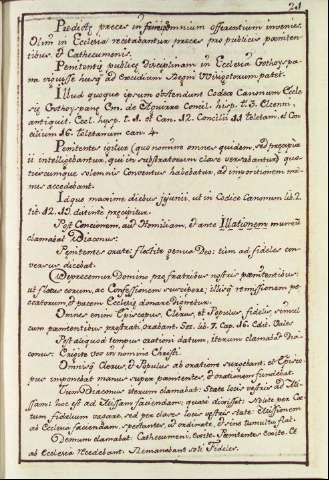 21
Prędictę preces in fine omnium offerentium invenies.
Olim in Ecclesia recitabantur preces pro publicis pœniten-
tibus, & Cathecumenis.
Penitentię publicę Disciplinam in Ecclesia Gothoyspa-
na viguisse usq ad excidium Regni Visigotorum patet.
Illud quoque ipsum ostendunt Codex Canonum Eccle-
się Gothoyspanę Em. de Aguirre Concil. hisp. t. 3. Cenni,
antiquit. Eccl. hysp. t. 1. et Can. 12. Concilii 11 toletani, et Con-
cilium 16. toletanum can. 4.
Penitentes igitur (quo nomine omnes quidem, sed præcipue
ii intelligebantur, qui in substratorum classe versabantur) quo-
tiescumque solemnis Conventus habebatur, ad impositionem ma-
nus accedebant.
Idque maxime diebus jejunii, ut in Codice Canonum lib. 2.
tit. 12. 13. præcipitur.
Post Concionem, aut Homiliam, & ante Illationem
clamabat Diaconus:
Penitentes orate: flectite genua Deo: tum ad fideles con-
versus dicebat.
Deprecemur Dominum pro fratribus nostris pœnitentibus:
ut fletus eorum, ac Confessionem suscipere; illisq remissionem pe-
catorum, & pacem Ecclesię donare dignetur.
Omnes enim Episcopus, Clerus, et Populus fidelis, simul
cum pœnitentibus prostrati orabant.
Post aliquod tempus orationi datum, iterum clamabat Dia-
conus: Erigite vos in nomine Christi.
Omnisq Clerus, & Populus ab oratione surgebant, et Episco-
pus imponebat manus super pœnitentes, & orationem fundebat.
Tum Diaconus iterum clamabat: State locis vestris ad Mi-
ssam: hoc est ad Missam faciendam; quasi dixisset: Nolite per Cæ-
tum fidelium vagare, sed per classes locis vestris state: Missionem
ab Ecclesia faciendam spectantes, ut ordinate, & sine tumultu fiat.
Demum clamabat: Cathecumeni, exite. Penitentes exite. Et
ab Ecclesia recedebant. Remanebant soli Fideles.